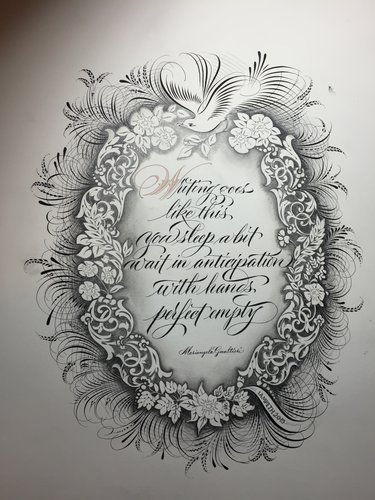 Writing goes
like this
you sleep a bit
wait in anticipation
with hands,
perfect empty
Mariangela Gualtieri